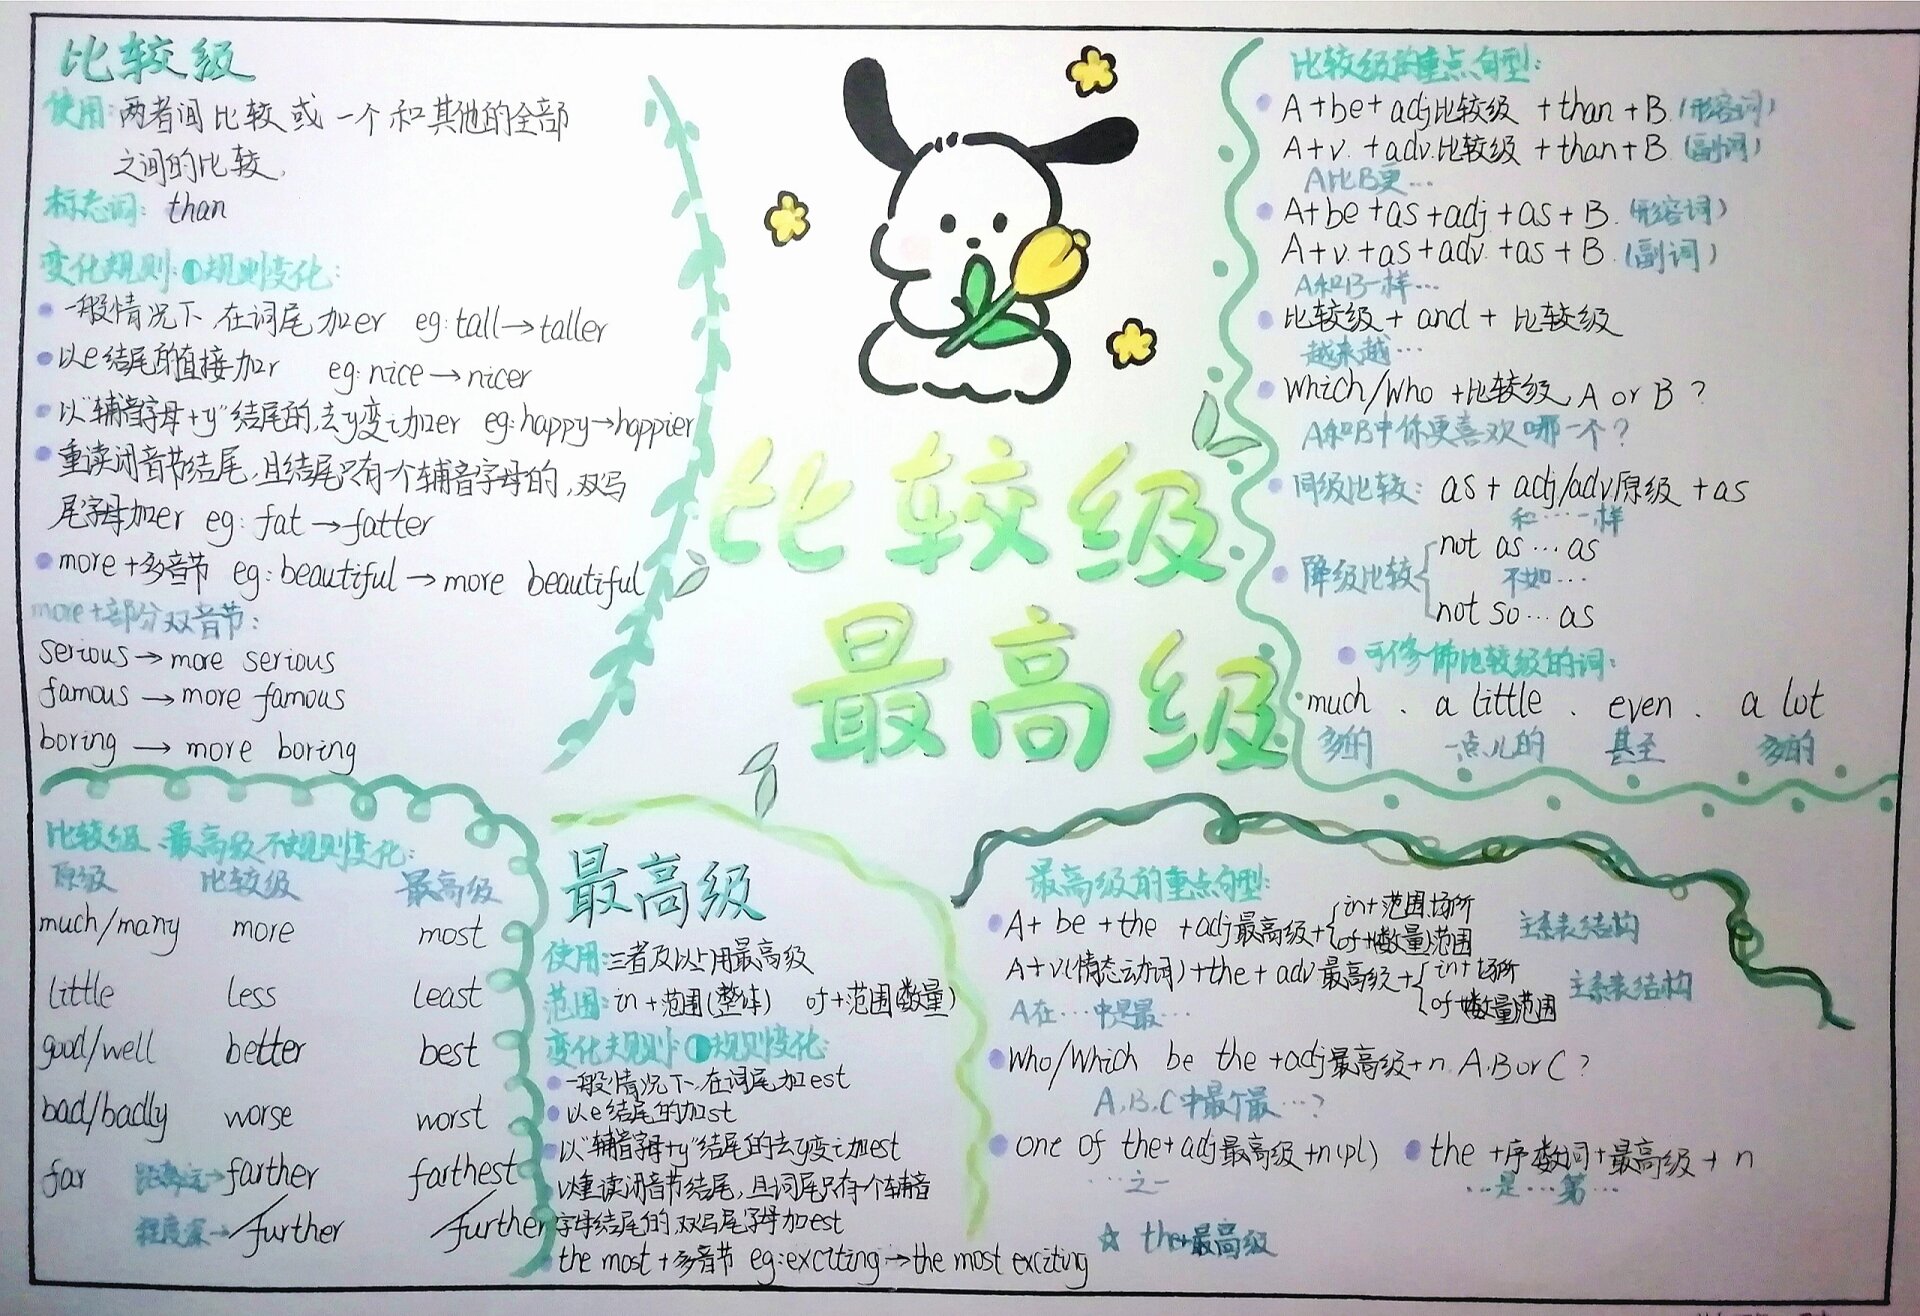 比较级
使用:两者间比较或一个和其他的全部
之间的比较.
标志词: than
变化规则:①规则变化:
一般情况下,在词尾加er eg: tall→taller
以e结尾的直接加r eg: nice→nicer
以"辅音字母+y"结尾的,去y变i加er eg: happy→happier
重读闭音节结尾,且结尾只有一个辅音字母的,双写
尾字母加er eg: fat→fatter
more+多音节 eg: beautiful→more beautiful
more+部分双音节:
serious→more serious
famous→more famous
boring→more boring
比较级
最高级
比较级的重点句型:
A+be+adj比较级+than+B.(形容词)
A+v.+adv.比较级+than+B.(副词)
A比B更…
A+be+as+adj+as+B.(形容词)
A+v.+as+adv.+as+B.(副词)
A和B一样…
比较级+and+比较级
越来越…
Which/Who+比较级,A or B?
A和B中你更喜欢哪一个?
同级比较: as+adj/adv原级+as
和……一样
not as…as
降级比较 不如…
not so…as
可修饰比较级的词:
much、a little、even、a lot
多的 一点儿的 甚至 多的
比较级、最高级不规则变化:
原级 比较级 最高级
much/many more most
little less least
good/well better best
bad/badly worse worst
far 距离远→farther farthest
程度深→further further
最高级
使用:三者及以上用最高级
范围:in+范围(整体) of+范围(数量)
变化规则:①规则变化:
一般情况下,在词尾加est
以e结尾的加st
以"辅音字母+y"结尾的去y变i加est
以重读闭音节结尾,且词尾只有一个辅音
字母结尾的,双写尾字母加est
the most+多音节 eg: exciting→the most exciting
最高级的重点句型:
A+be+the+adj最高级+{in+范围、场所
of+(数量)范围 主系表结构
A+v(情态动词)+the+adv最高级+{in+场所
of+数量范围 主系表结构
A在……中是最…
Who/Which be the+adj最高级+n.A,B or C?
A,B,C中最个最…?
one of the+adj最高级+n(pl) the+序数词+最高级+n
……之一 …是…第…
☆ the+最高级